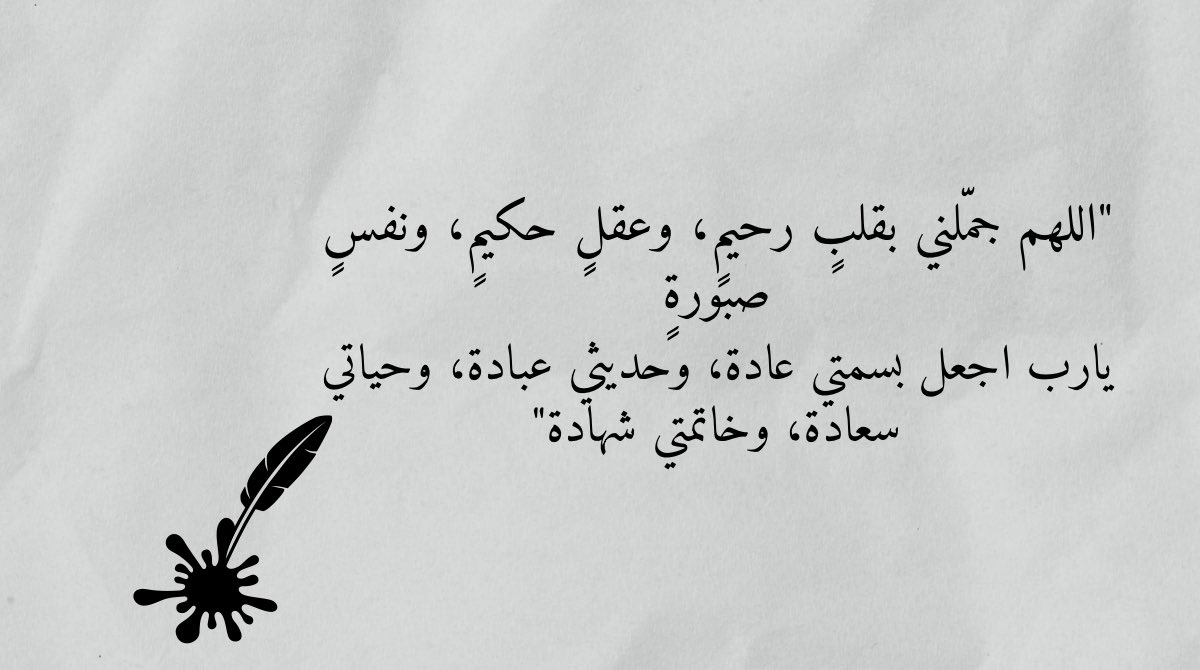 "اللهم جمّلني بقلبٍ رحيمٍ، وعقلٍ حكيمٍ، ونفسٍ
صبورةٍ
يارب اجعل بسمتي عادة، وحديثي عبادة، وحياتي
سعادة، وخاتمتي شهادة"